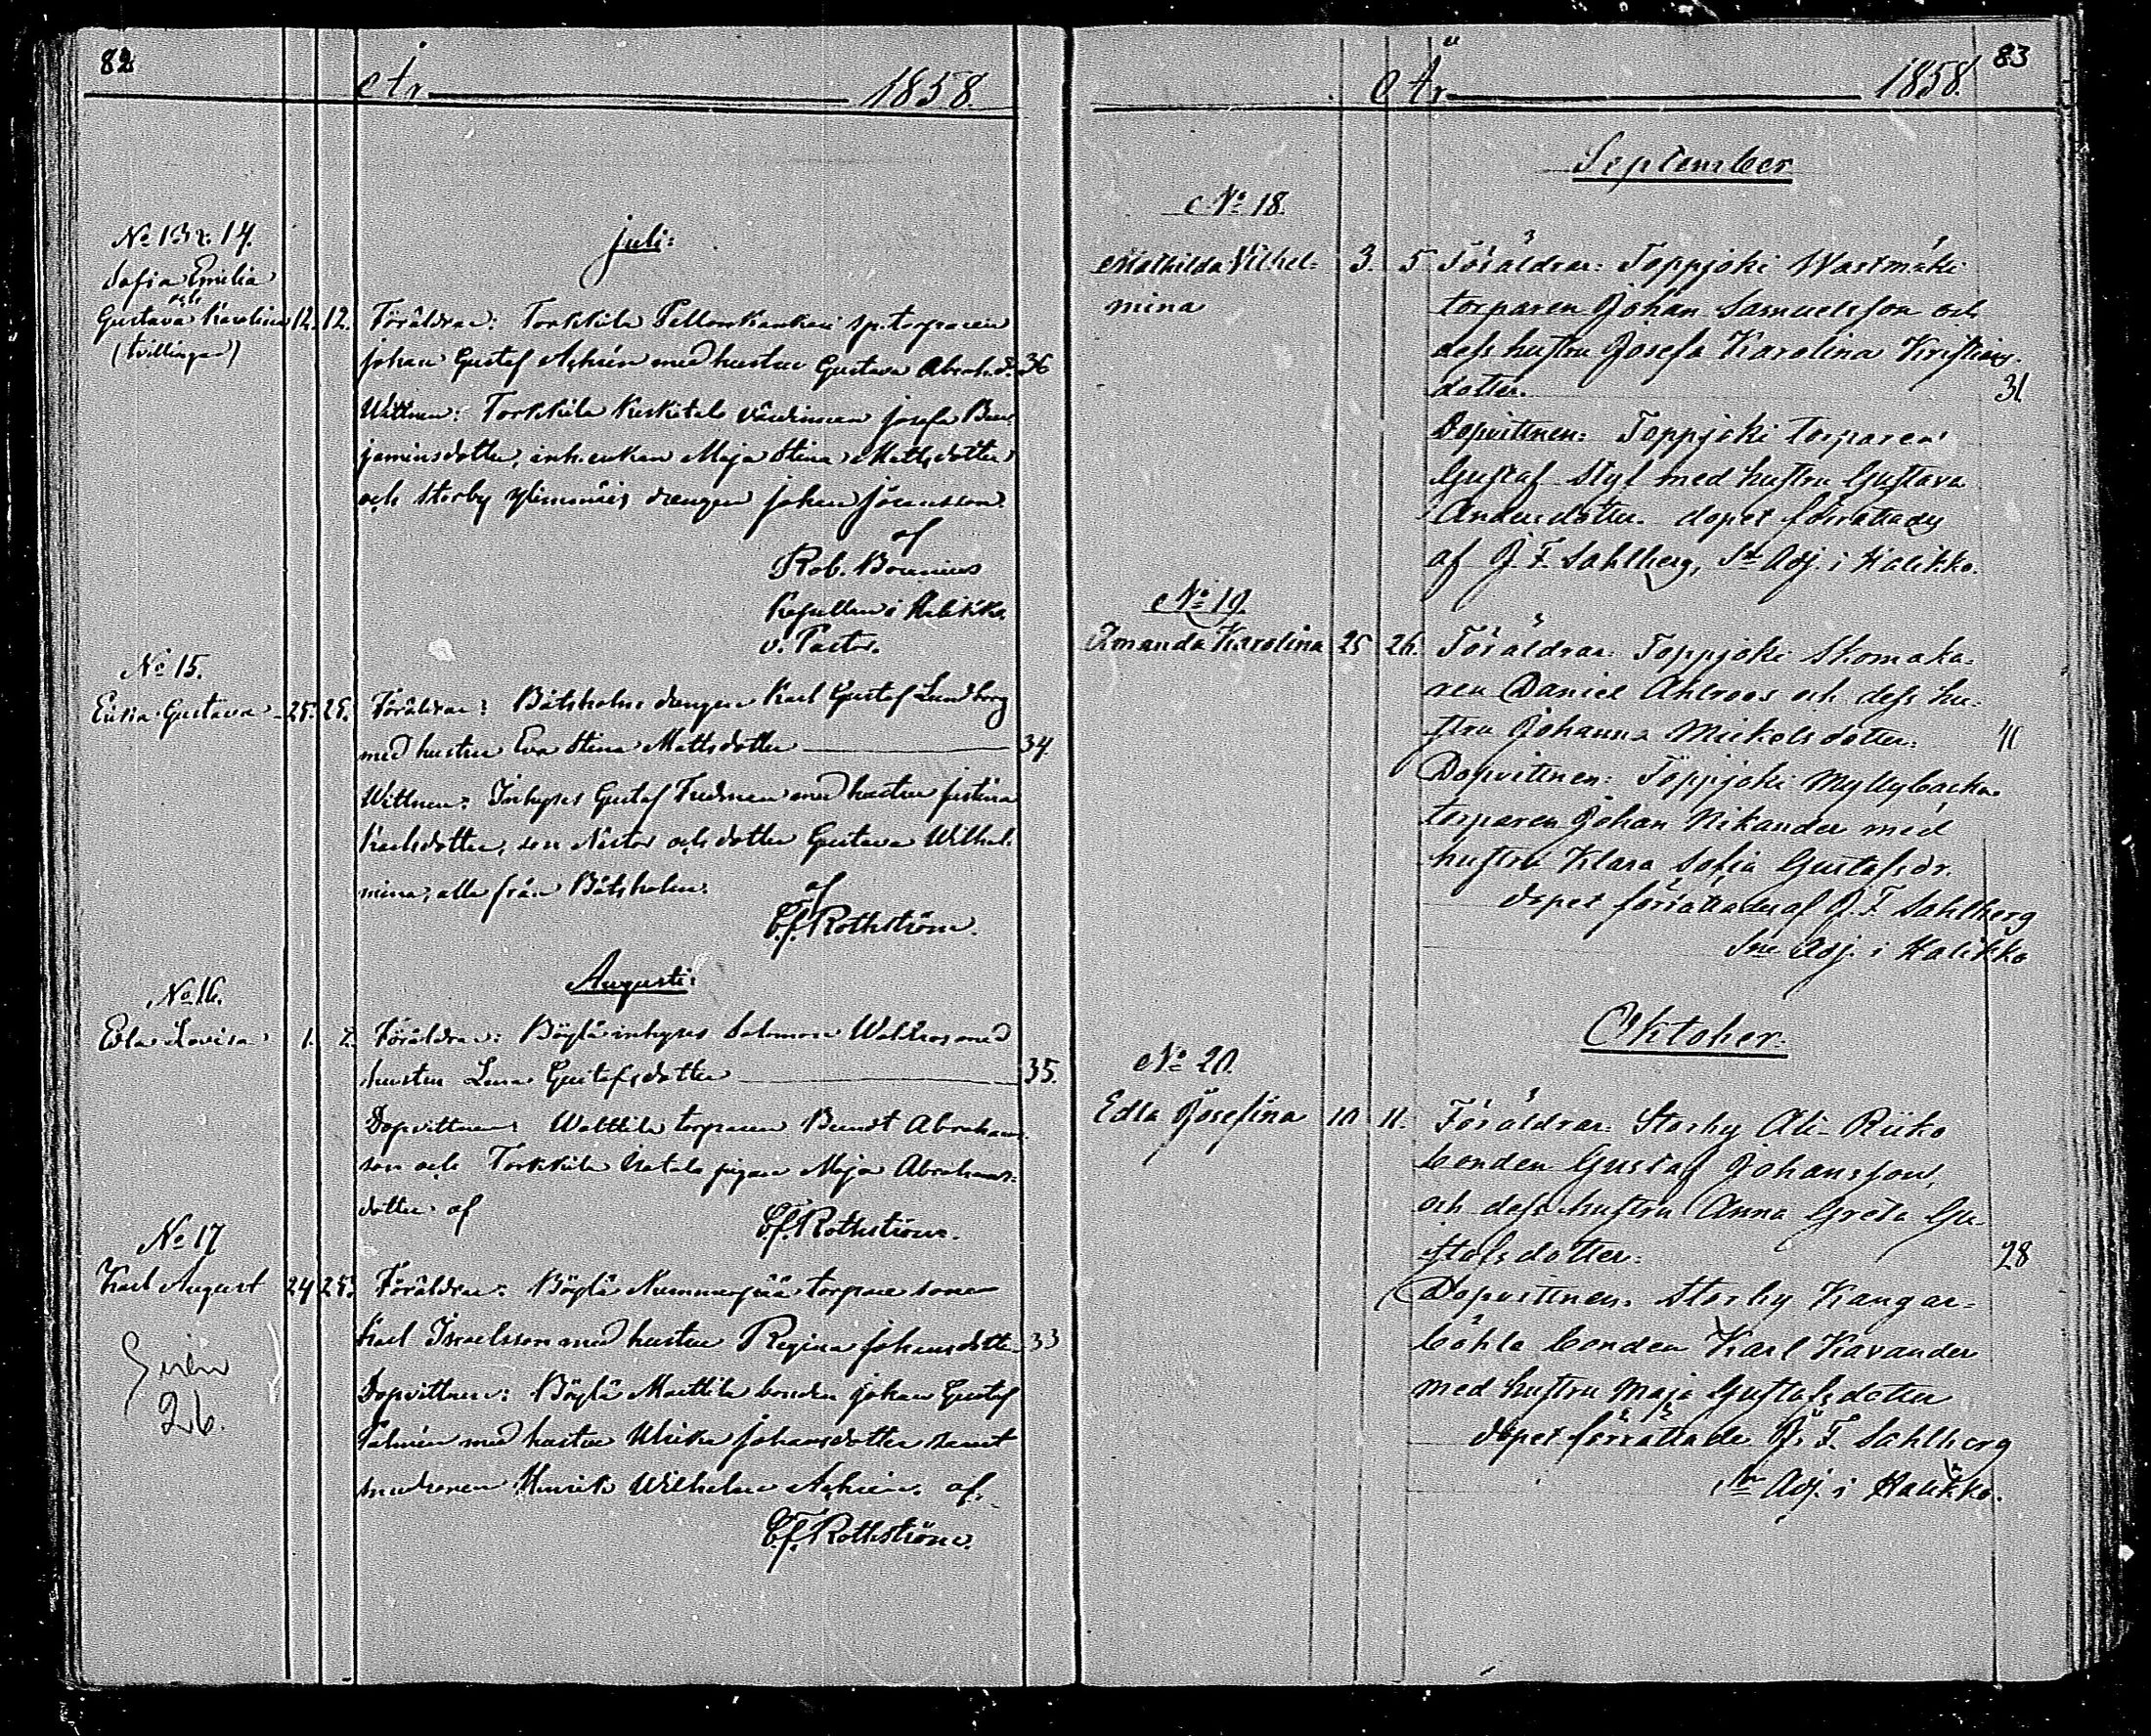 82
År 1858.
Juli:
No 13 & 14.
Sofia Emilia
och
Gustava Karolina 12. 12.
(tvillingar)
Föräldrar: Torkkila Pellonkankari sp.torparen
Johan Gustaf Achrén med hustru Gustava Abrah.d. 36
Wittnen: Torkkila Keskitalo värdinnan Josefa Ben-
jaminsdotter, inh.enkan Maja Stina Mattsdotter
och Storby Ylimmäis drengen Johan Jöransson.
af
Rob. Bonenius
Kapellan i Halikko.
v. Pastor.
No 15.
Erika Gustava 25. 25.
Föräldrar: Båtsholm drengen Karl Gustaf Lundborg
med hustru Eva Stina Mattsdotter 34
Wittnen: Inhyses Gustaf Fredman med hustru Justina
Karlsdotter, son Nestor och dotter Gustava Wilhel-
mina, alla från Båtsholm.
af
C.J. Rothström.
Augusti:
No 16.
Edla Lovisa 1. 2.
Föräldrar: Böylä inhyses Salomon Wahlroos med
hustru Lena Gustafsdotter 35.
Dopvittnen: Walttila torparen Berndt Abrahams-
son och Torkkila Uotalo pigan Maja Abrahams-
dotter af
C.J. Rothström.
No 17
Karl August 24 25.
Föräldrar: Böylä Nummenpää torpare sonen
Karl Israelsson med hustru Regina Johansdotter 33
Dopvittnen: Böylä Marttila bonden Johan Gustaf
Palmén med hustru Ulrika Johansdotter samt
smedsonen Henrik Wilhelm Achrén. af
C.J. Rothström.
26.
83
År 1858.
September
No 18.
Mathilda Vilhel-
mina
3. 5
Föräldrar: Toppjoki Wastmäki
torparen Johan Samuelsson och
dess hustru Josefa Karolina Kristians-
dotter. 31
Dopvittnen: Toppjoki torparen
Gustaf Styl med hustru Gustava
Andersdotter. dopet förrättades
af J. F. Sahlberg, Sne Adj. i Halikko.
No 19.
Amanda Karolina 25 26.
Föräldrar: Toppjoki Skomaka-
ren Daniel Ahlroos och dess hu-
stru Johanna Mickelsdotter. 40
Dopvittnen: Toppjoki Myllybacka
torparen Johan Nikander med
hustru Klara Sofia Gustafsdr.
dopet förrättades af J. F. Sahlberg
Sne Adj. i Halikko
Oktober.
No 20.
Edla Josefina 10 11.
Föräldrar: Storby Ali-Riiko
bonden Gustaf Johansson,
och dess hustru Anna Greta Gu-
stafsdotter. 28
Dopvittnen: Storby Kangar-
böhle bonden Karl Kavander
med hustru Maja Gustafsdotter
dopet förrättade J. F. Sahlberg
Sne Adj. i Halikko.